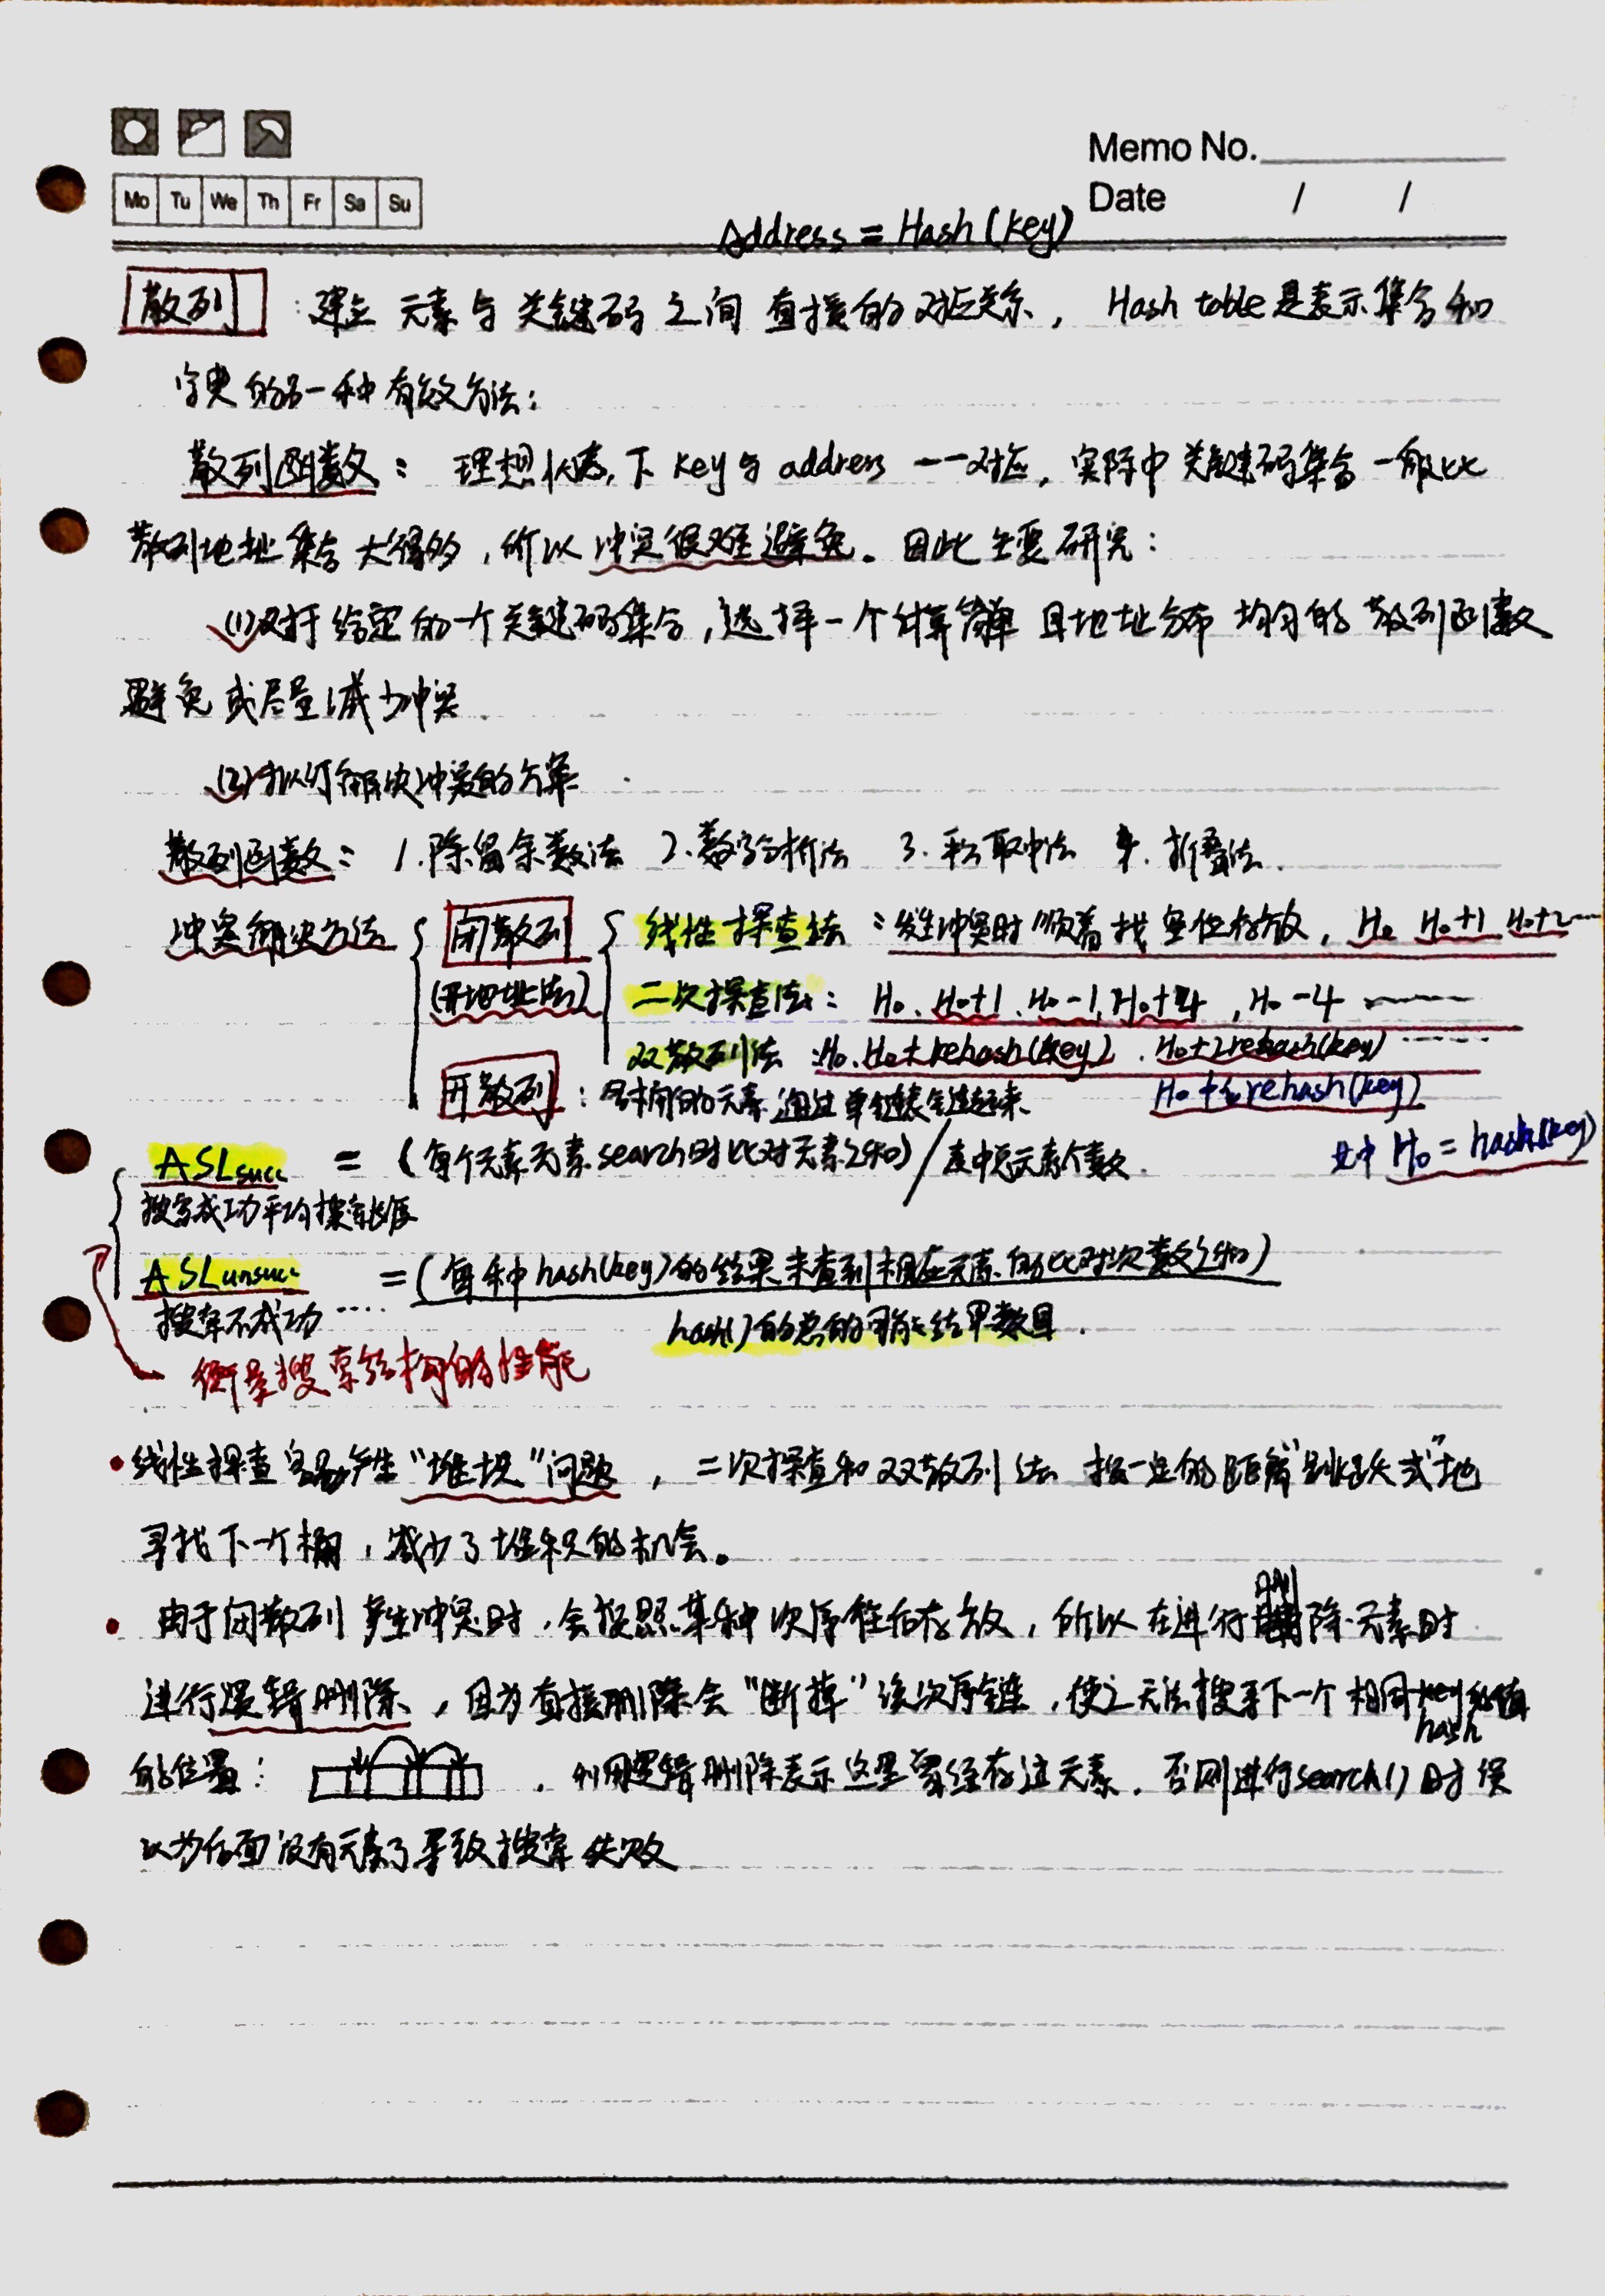 Memo No.
Mo Tu We Th Fr Sa Su
Date / /
Address = Hash(key)
散列：建立元素与关键码之间直接的对应关系，Hash table是表示集合和
字典的另一种有效方法：
散列函数：理想状态下key与address一一对应，实际中关键码集合一般比
散列地址集合大得多，所以冲突很难避免。因此主要研究：
(1)对于给定的一个关键码集合，选择一个计算简单且地址分布均匀的散列函数
避免或尽量减少冲突
(2)拟订解决冲突的方案
散列函数：1.除留余数法 2.数字分析法 3.平方取中法 4.折叠法.
冲突解决方法 { 闭散列 { 线性探查法：发生冲突时顺着找空位存放，H₀ H₀+1 H₀+2……
(开地址法) 二次探查法：H₀.H₀+1.H₀-1,H₀+4,H₀-4……
双散列法：H₀.H₀+rehash(key).H₀+2rehash(key)……
开散列：各桶的元素通过单链表链起来 H₀+i·rehash(key)
ASLsucc =（每个元素元素search时比对元素之和)/表中总元素个数. 其中H₀=hash(key)
搜索成功平均搜索长度
ASLunsucc =(每种hash(key)的结果未查到相应元素的比对次数之和)
搜索不成功…… hash()的总的可能结果数目.
衡量搜索结构的性能
•线性探查容易产生“堆积”问题，二次探查和双散列法按一定的距离“跳跃式”地
寻找下一个桶，减少了堆积的机会。
•由于闭散列产生冲突时，会按照某种次序往后存放，所以在进行删除元素时
进行逻辑删除，因为直接删除会“断掉”该次序链，使之无法搜寻下一个相同hash
的位置：，利用逻辑删除表示这里曾经存过元素，否则进行search()时误
以为后面没有元素了导致搜索失败